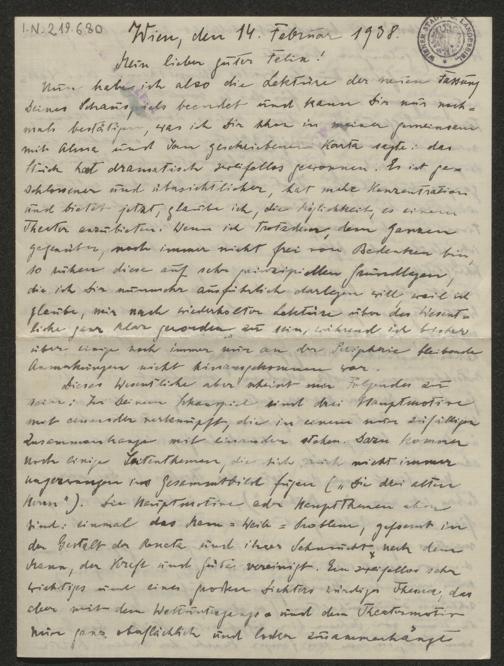 I.N. 219.680
Wien, den 14. Februar 1938.
Mein lieber guter Felix!
Nun habe ich also die Lektüre der neuen Fassung
Deines Schauspiels beendet und kann Dir nur noch-
mals bestätigen, was ich Dir schon in meiner gemeinsam
mit Alma und geschriebenen Karte sagte: das
Stück hat dramatisch zweifellos gewonnen. Es ist ge-
schlossener und übersichtlicher, hat mehr Konzentration
und bietet jetzt, glaube ich, die Möglichkeit, es einem
Theater anzubieten. Wenn ich trotzdem, dem Ganzen
gegenüber, noch immer nicht frei von Bedenken bin,
so ruhen diese auf sehr prinzipiellen Grundlagen,
die ich Dir nunmehr ausführlich darlegen will, weil ich
glaube, mir nach wiederholter Lektüre über das Wesent-
liche ganz klar geworden zu sein, während ich bisher
über einige noch immer nur an der Peripherie bleibende
Anmerkungen nicht hinausgekommen war.
Dieses Wesentliche aber scheint mir Folgendes zu
sein: In Deinem Schauspiel sind drei Hauptmotive
mit einander verknüpft, die in einem nur zufälligen
Zusammenhange mit einander stehen. Dazu kommen
noch einige Seitenthemen, die sich auch nicht immer
ungezwungen ins Gesamtbild fügen („Die drei alten
Herren"). Die Hauptmotive oder Hauptthemen aber
sind: einmal das Mann-Weib-Problem, geformt in
der Gestalt der Renata und ihrer Sehnsucht nach dem
Mann, der Kraft und Güte vereinigt. Ein zweifellos sehr
wichtiges und eines großen Dichters würdiges Thema, das
aber mit dem Weltuntergangs- und dem Theatermotiv
nur ganz oberflächlich und locker zusammenhängt